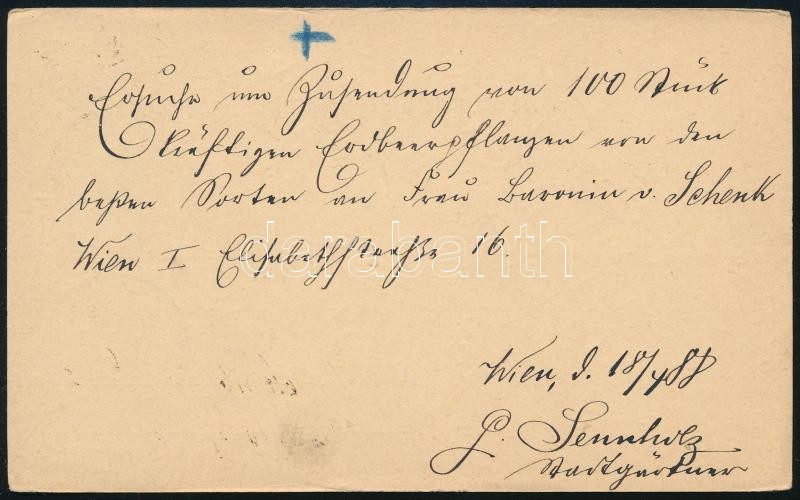 Ersuche um Zusendung von 100 Stück
kräftigen Erdbeerpflanzen von den
beßten Sorten an Frau Baronin v. Schenk
Wien I Elisabethstraße 16.
darabanth
Wien, d. 18/4 88
G. Sennholz
Stadtgärtner